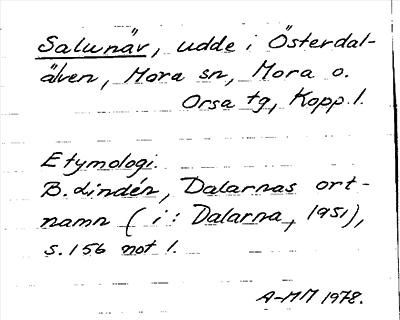 Salunäv, udde i Österdal-
älven, Mora sn, Mora o.
Orsa tg, Kopp. l.
Etymologi.
B. Lindén, Dalarnas ort-
namn (i: Dalarna, 1951),
s. 156 not 1.
A-MM 1978.